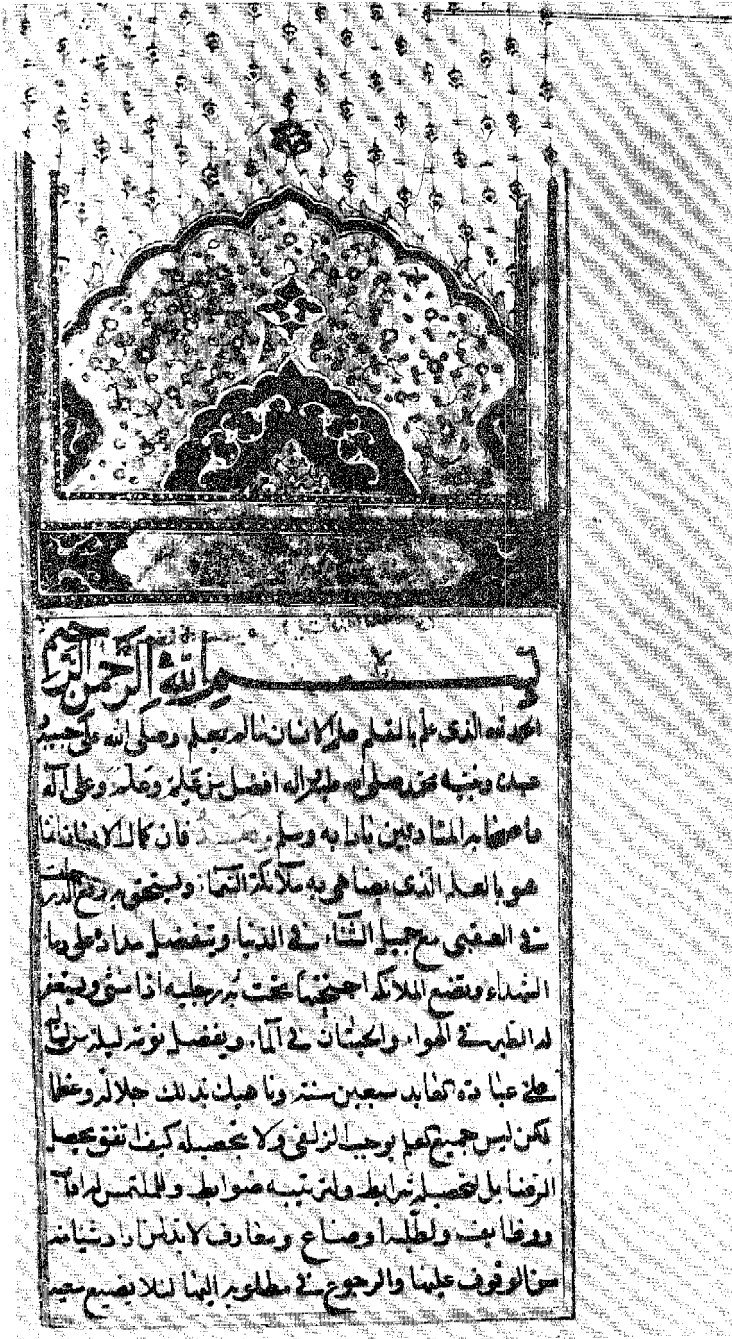 بسم الله الرحمن الرحيم
الحمد لله الذى علم بالقلم علم الانسان مالم يعلم وصلى الله على حبيبه
عبده ونبيه محمد صلى الله عليه واله افضل من علم وعلم وعلى آله
واصحابه المتادبين بادابه وسلم وبعد فان كمال الانسان انما
هو بالعلم الذى يضاهى به ملائكة السماء ويستحق به رفيع الدرجات
فى العقبى مع جميل الثناء فى الدنيا ويتفضل مداده على دماء
الشهداء وتضع الملائكة اجنحتها تحت رجليه اذا مشى ويستغفر
له الطير فى الهواء والحيتان فى الماء ويفضل نومة ليلة من لياليه
على عبادة العابد سبعين سنة وناهيك بذلك جلالة وعظما
لكن ليس جميع العلم يوجب الزلفى ولا تحصيله كيف اتفق يحصل
الرضا بل لتحصيله شرايط ولترتيبه ضوابط وللملتمس له اداب
ووظايف ولطلبه اوضاع ومعارف لابد لمن اراد شيئا منه
من الوقوف عليها والرجوع فى مطلوبه اليها لئلا يضيع سعيه